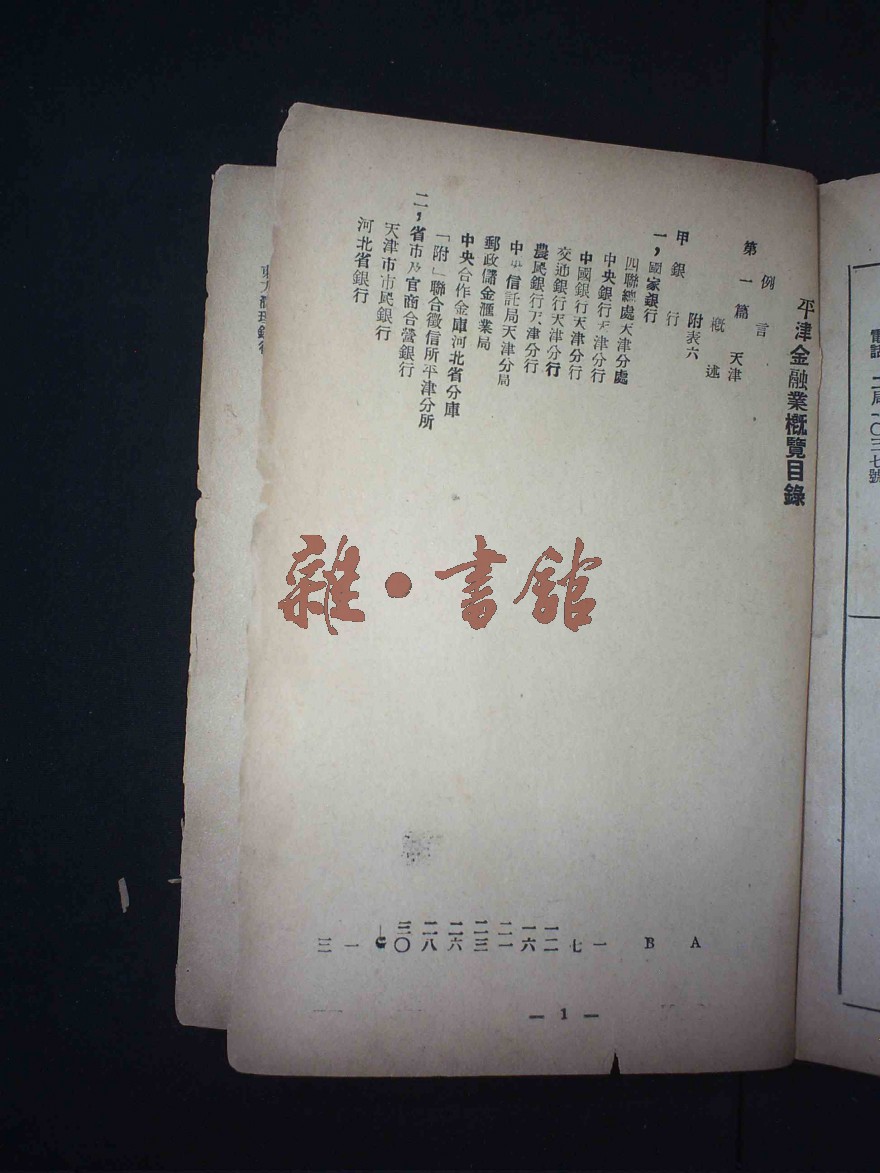 電話 二局一〇三七號
平津金融業概覽目錄
例言 A
第一篇 天津
概述 B
甲 銀行 附表六
一，國家銀行
四聯總處天津分處 一
中央銀行天津分行 七
中國銀行天津分行 一二
交通銀行天津分行 一六
農民銀行天津分行 二一
中央信託局天津分局 二三
郵政儲金滙業局 二六
中央合作金庫河北省分庫 二八
「附」聯合徵信所平津分所 三〇
二，省市及官商合營銀行
天津市市民銀行 一
河北省銀行 三
— 1 —
雜·書館